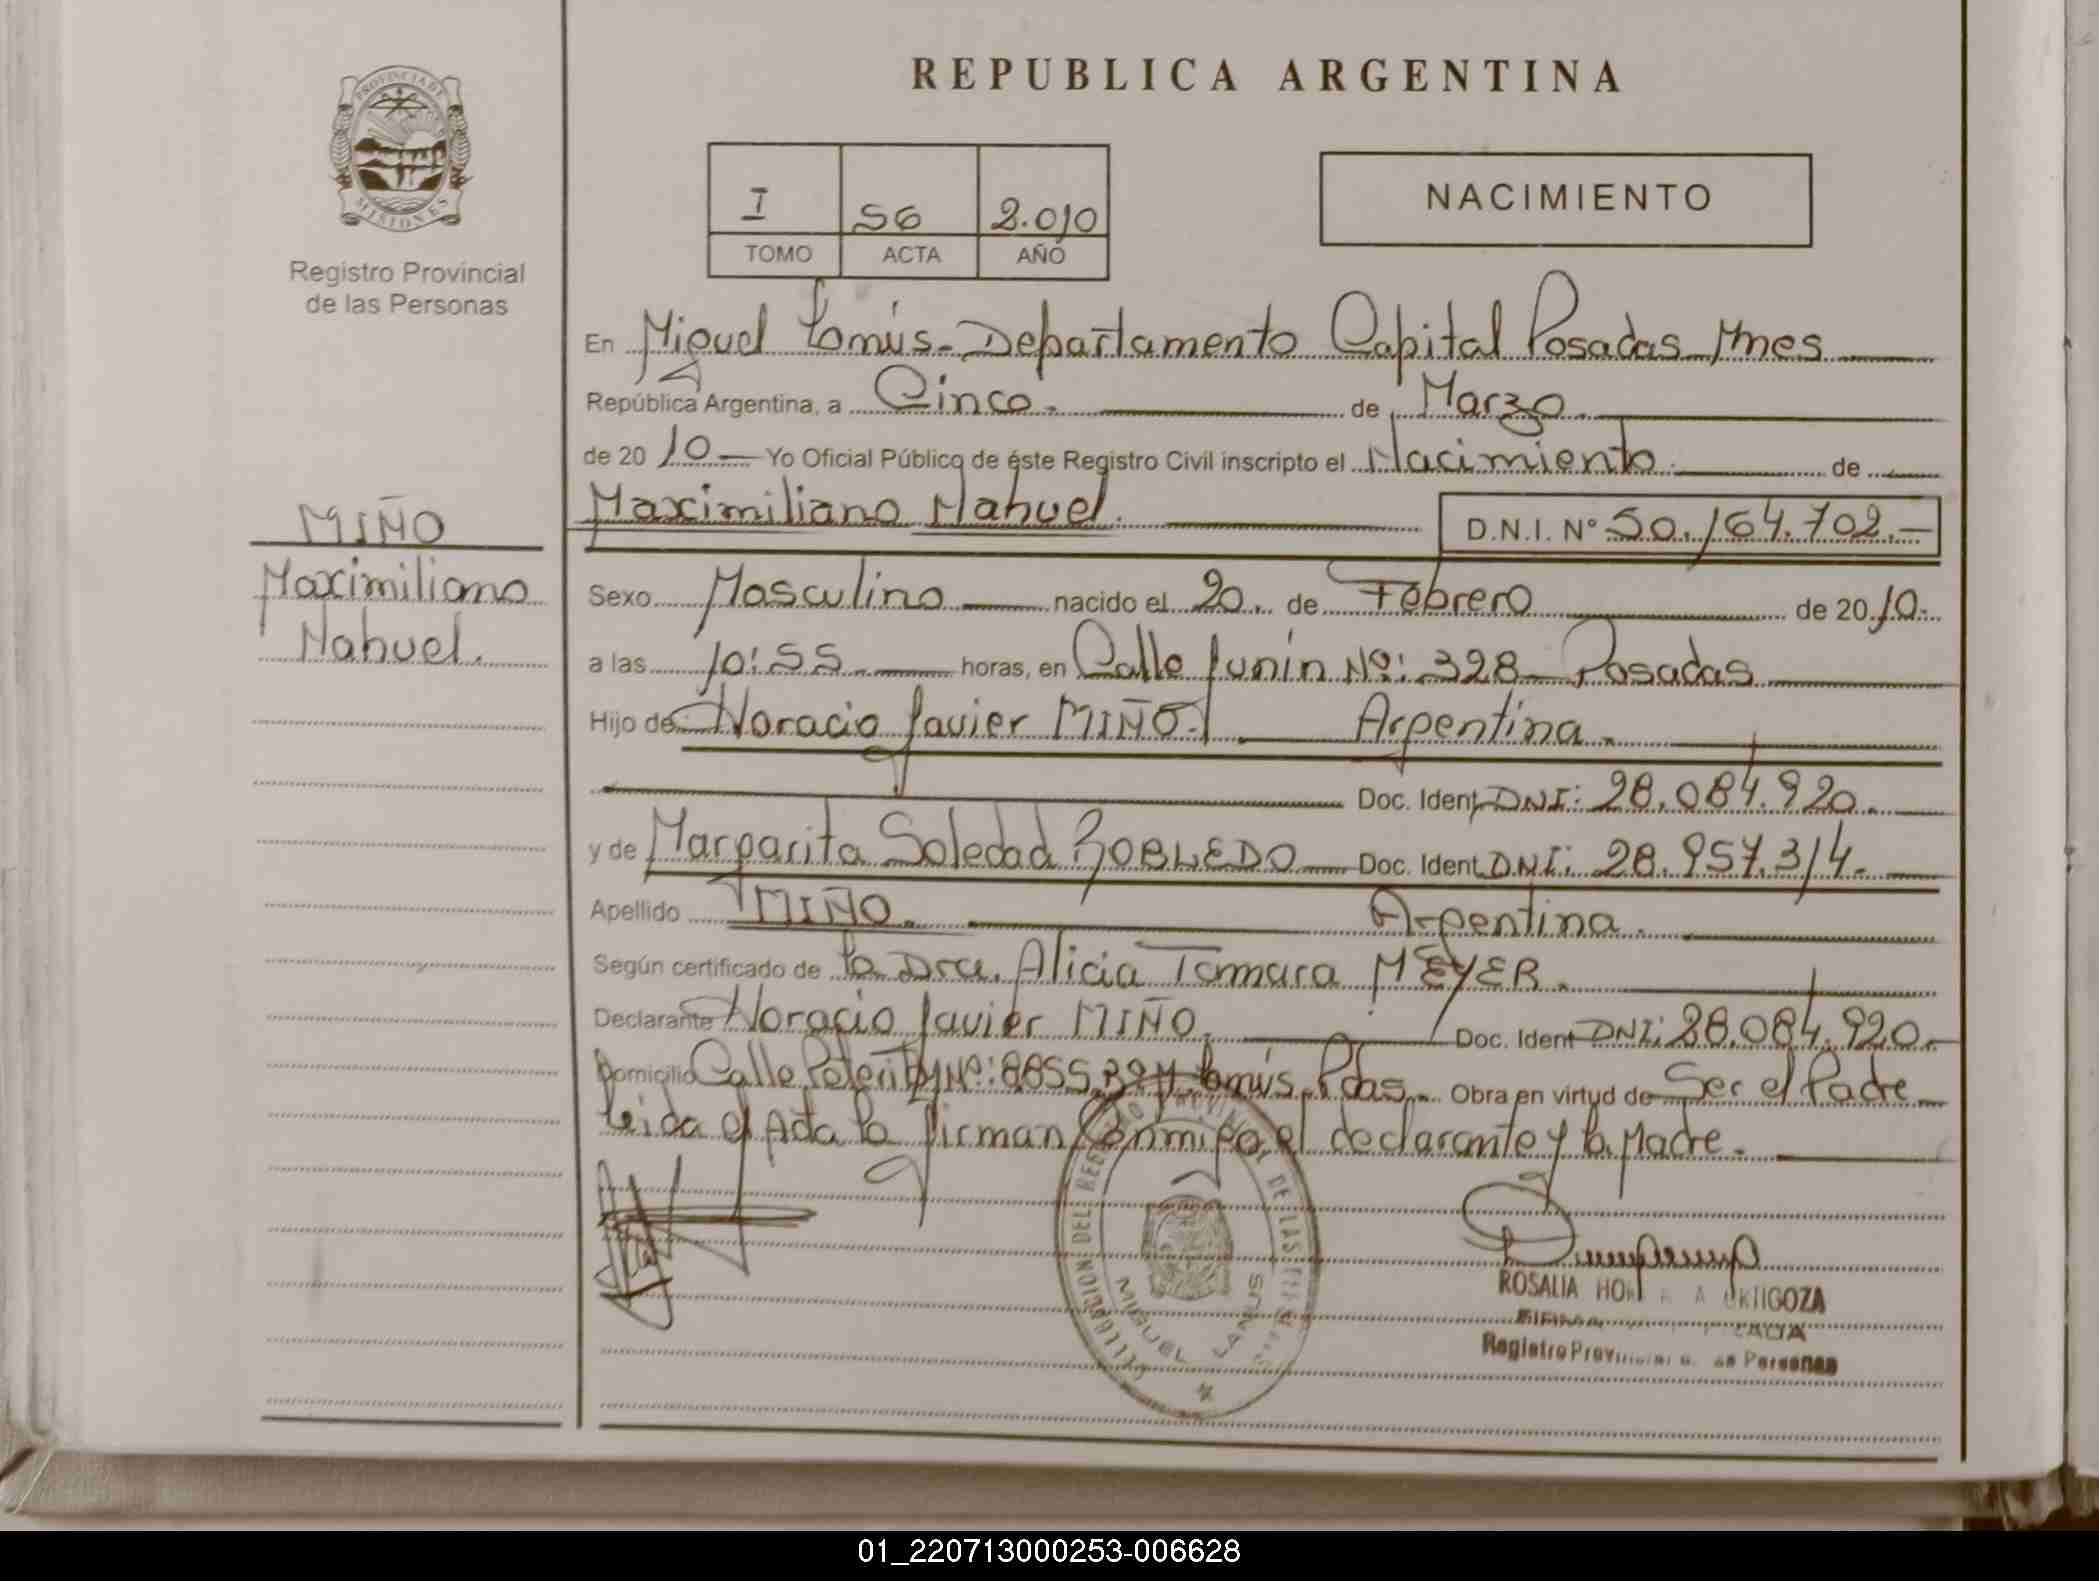 REPUBLICA ARGENTINA
PROVINCIA DE
MISIONES
Registro Provincial
de las Personas
I S6 2.010
TOMO ACTA AÑO
NACIMIENTO
En Miguel Lanús - Departamento Capital Posadas Mnes
República Argentina, a Cinco. de Marzo.
de 2010 Yo Oficial Público de éste Registro Civil inscripto el Nacimiento de
Maximiliano Nahuel. D.N.I. N° 50.164.702.-
MIÑO
Maximiliano
Nahuel.
Sexo Masculino nacido el 20 de Febrero de 2010.
a las 10:55 horas, en Calle Junín Nº: 328 - Posadas
Hijo de Horacio Javier MIÑO. Argentina.
Doc. Ident DNI: 28.084.920.
y de Margarita Soledad ROBLEDO Doc. Ident DNI: 28.957.314.
Apellido MIÑO. Argentina.
Según certificado de la Dra. Alicia Tamara MEYER.
Declarante Horacio Javier MIÑO. Doc. Ident DNI: 28.084.920.
Domicilio Calle Nº: 8855 Lanús. Pdas. Obra en virtud de Ser el Padre
leída el Acta la firman conmigo el declarante y la Madre.
MIGUEL LANUS
ROSALIA ORTIGOZA
Registro Provincial de las Personas
01_220713000253-006628